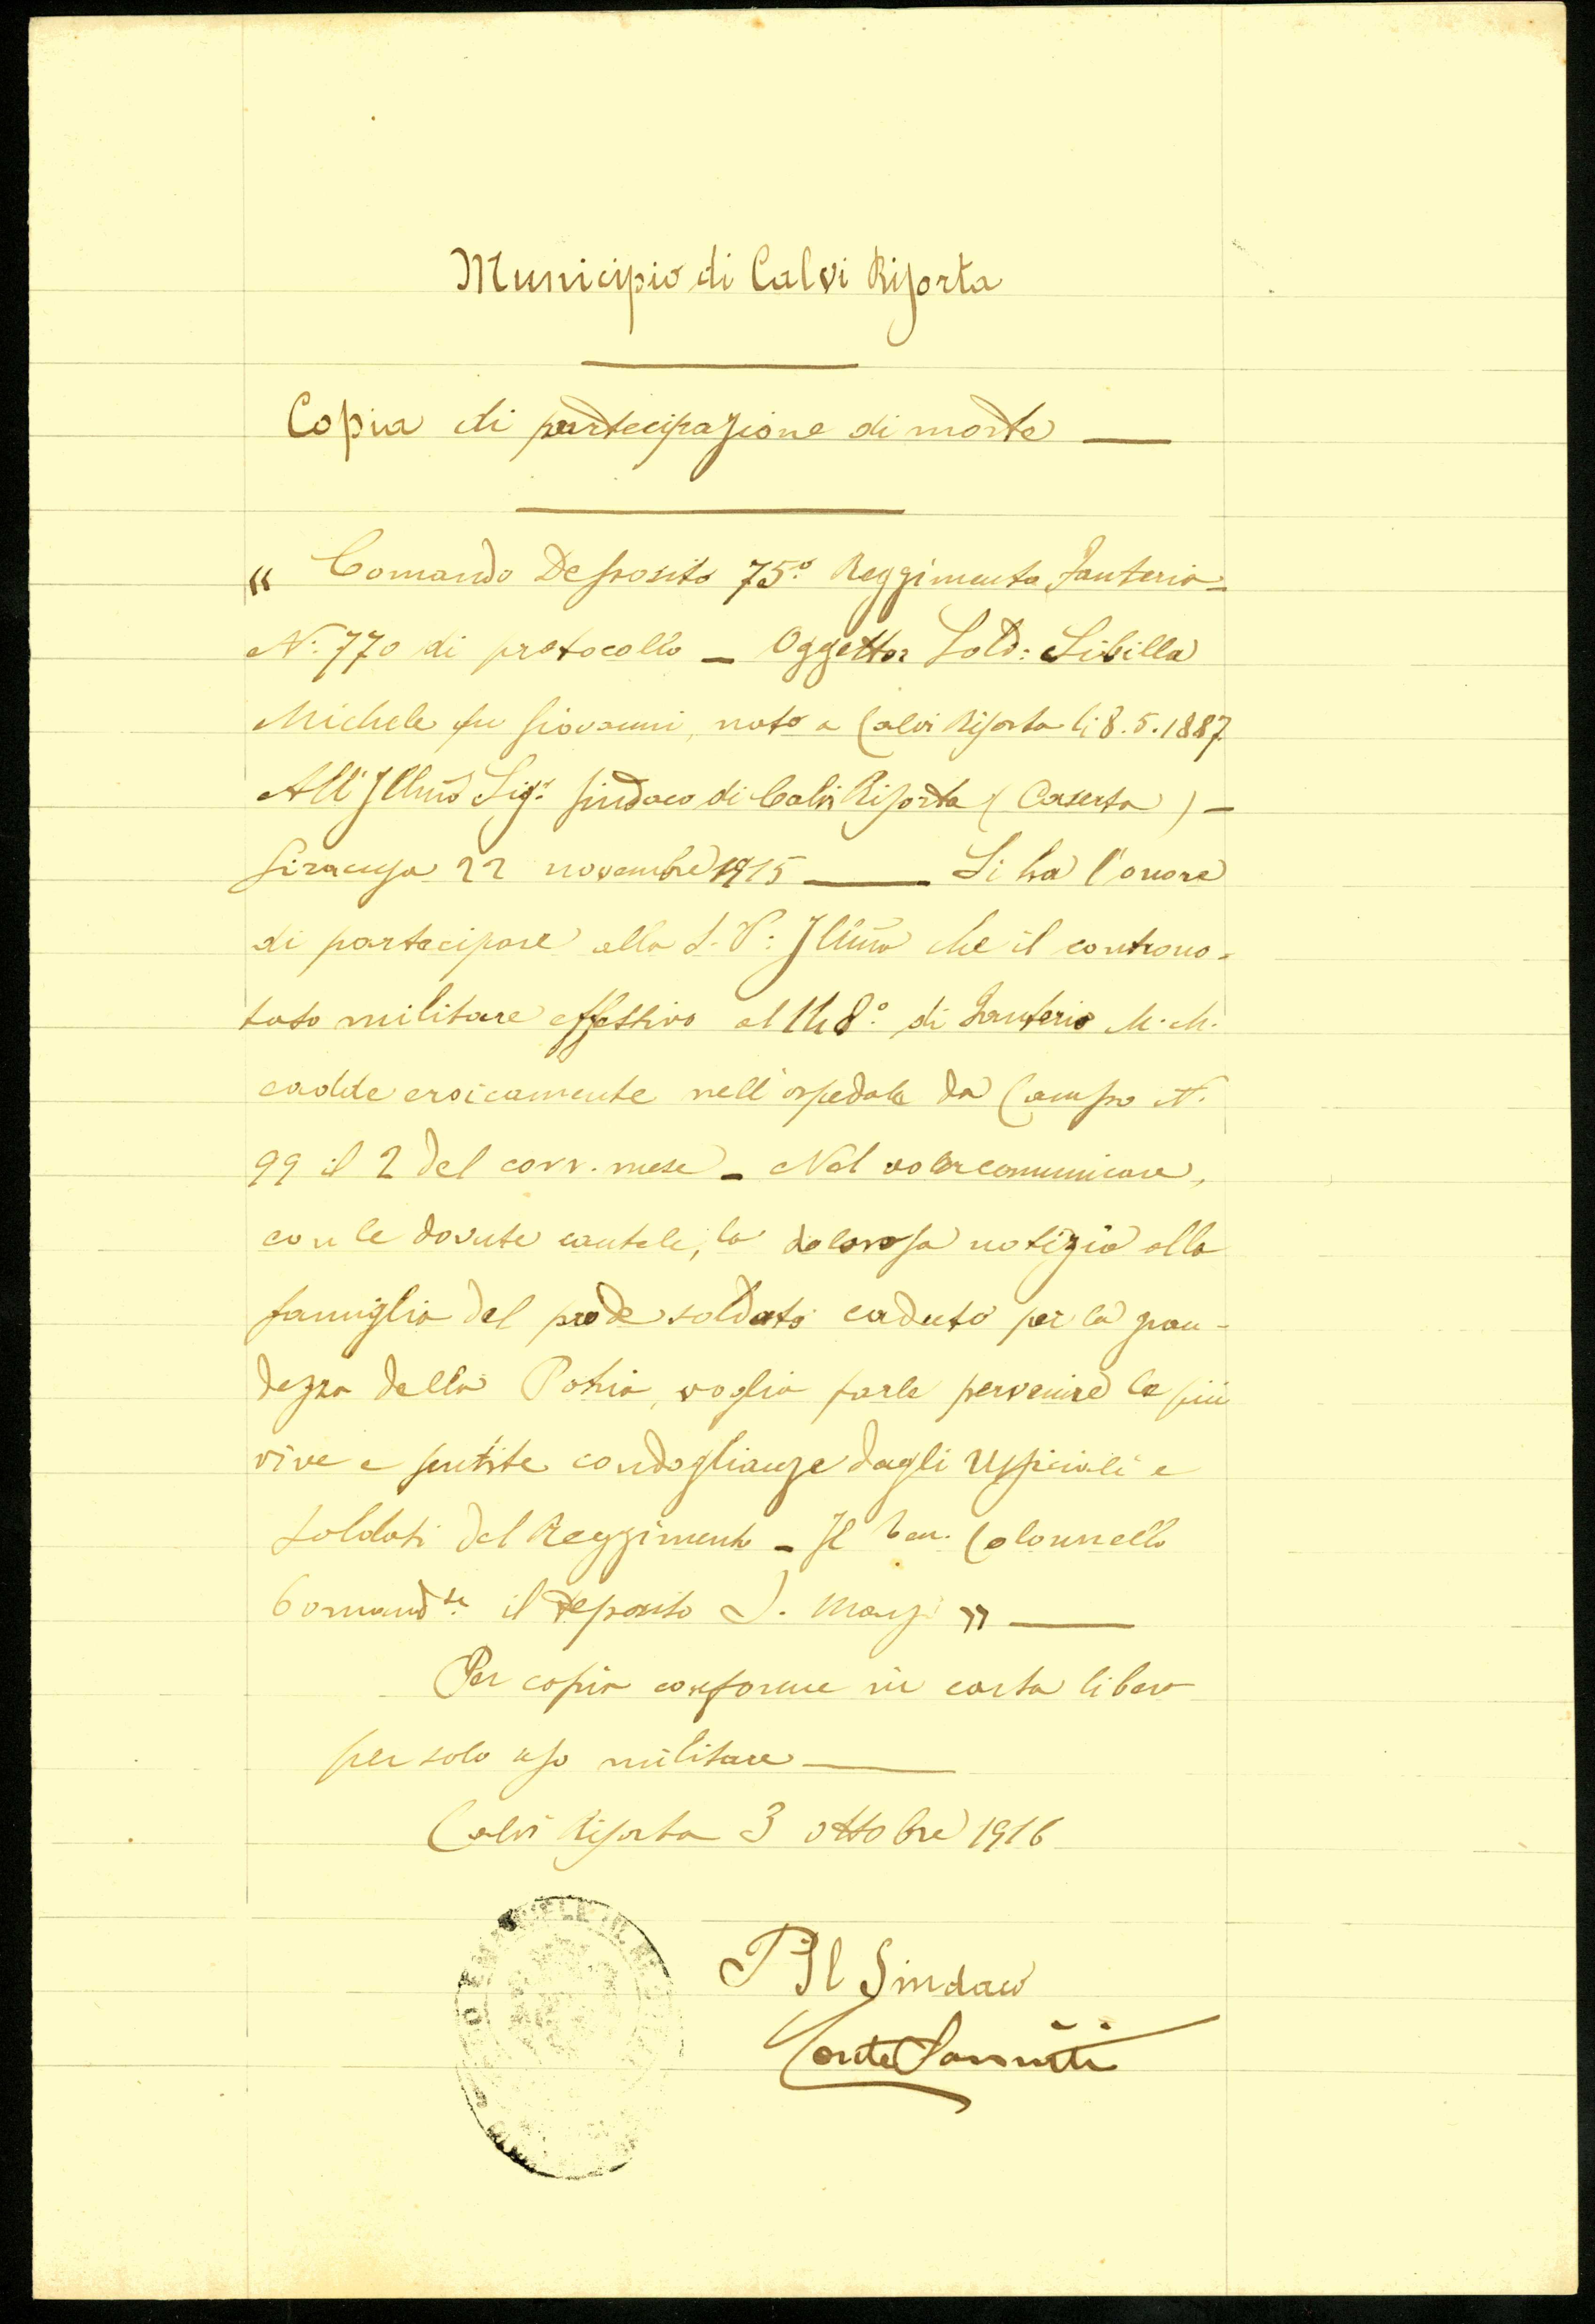 Municipio di Calvi Risorta
Copia di partecipazione di morte —
" Comando Deposito 75.º Reggimento Fanteria –
N. 770 di protocollo – Oggetto: Sold: Sibilla
Michele fu Giovanni, nato a Calvi Risorta li 8.5.1887.
All' Illmo Sigr. Sindaco di Calvi Risorta (Caserta) –
Siracusa 22 novembre 1915 — Si ha l'onore
di partecipare alla S. V. Illma che il controno-
tato militare effettivo al 148.º di Fanteria M. M.
cadde eroicamente nell'ospedale da Campo N.
99 il 2 del corr. mese – Nel voler comunicare,
con le dovute cautele, la dolorosa notizia alla
famiglia del prode soldato caduto per la gran-
dezza della Patria, voglia farle pervenire le più
vive e sentite condoglianze dagli Ufficiali e
soldati del Reggimento – Il Ten. Colonnello
Comandte. il deposito "—
Per copia conforme in carta libera
per solo uso militare —
Calvi Risorta 3 ottobre 1916
P. Il Sindaco